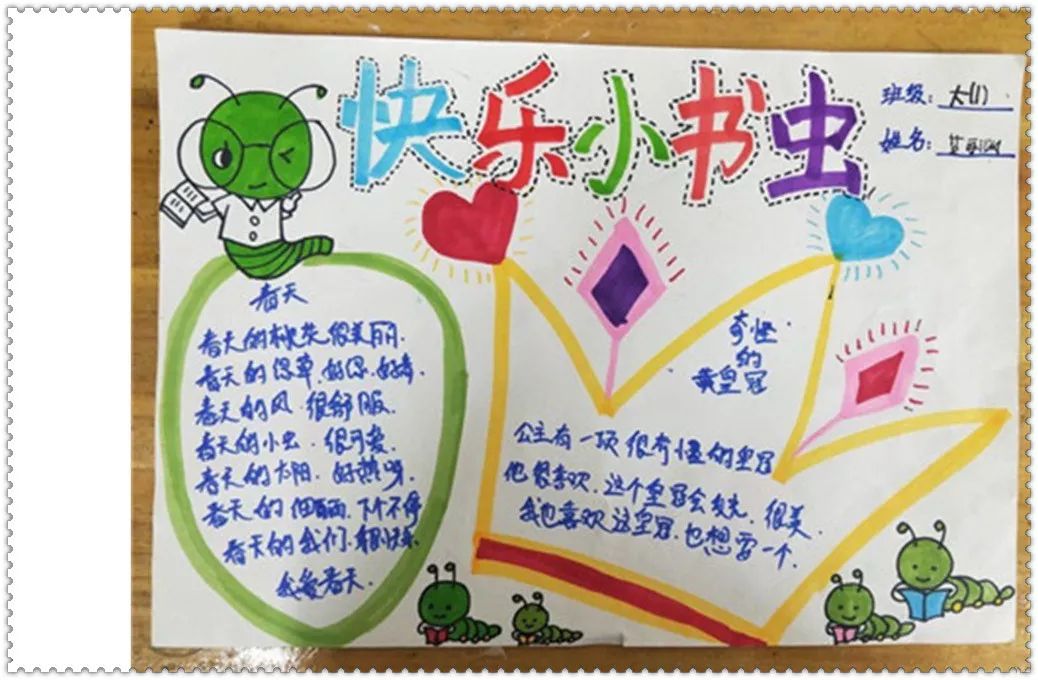 快乐小书虫
班级：大(1)
姓名：
春天
春天的桃花.很美丽.
春天的绿草.好绿.好香.
春天的风.很舒服.
春天的小虫.很可爱.
春天的太阳.好热呀.
春天的细雨.下个不停
春天的我们.
我爱春天.
奇怪
的
黄皇冠
公主有一顶很奇怪的皇冠
他很喜欢.这个皇冠会发光.很美.
我也喜欢这皇冠.也想要一个.